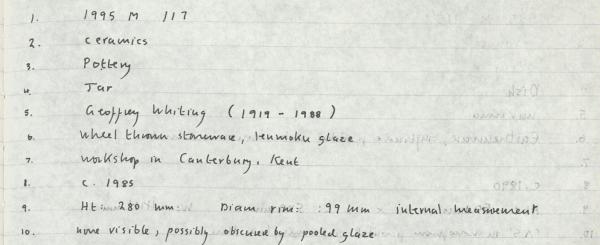 1. 1995 M 117
2. ceramics
3. Pottery
4. Jar
5. Geoffrey Whiting (1919 - 1988)
6. wheel thrown stoneware, tenmoku glaze
7. workshop in Canterbury, Kent
8. c. 1985
9. Ht: 280 mm Diam rim: : 99 mm internal measurement
10. none visible, possibly obscured by pooled glaze